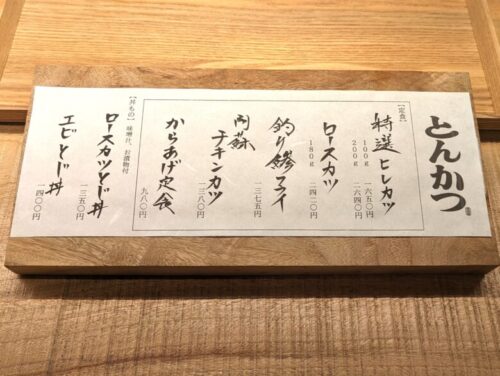 とんかつ
【定食】
特選ヒレカツ
100g 一六五〇円
200g 二六四〇円
ロースカツ
180g 二四二〇円
釣り鯵フライ
一三七五円
阿蘇
チキンカツ
一三八〇円
からあげ定食
九八〇円
【丼もの】 味噌汁、お漬物付
ロースカツとじ丼
一三五〇円
エビとじ丼
一四〇〇円